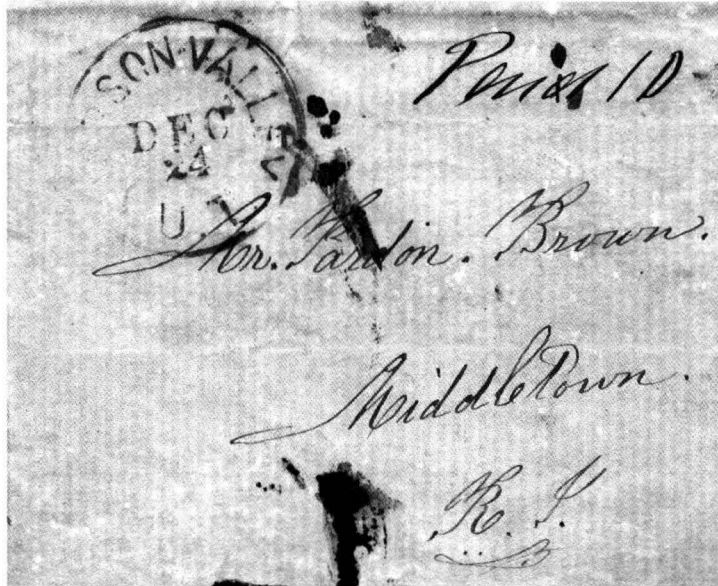 SON-VALLEY
DEC
24
U.T.
Paid 10
Mr. Pardon. Brown.
Middletown.
R. I.